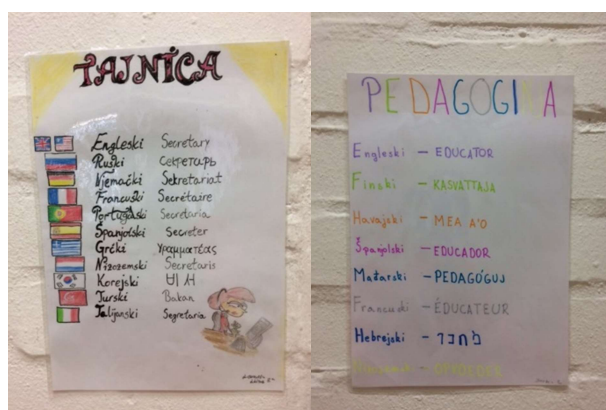 TAJNICA
Engleski Secretary
Ruski Секретарь
Njemački Sekretariat
Francuski Secrétaire
Portugalski Secretaria
Španjolski Secreter
Grčki γραμματέας
Nizozemski Secretaris
Korejski 비서
Turski Bakan
Talijanski Segretaria
PEDAGOGINJA
Engleski – EDUCATOR
Finski – KASVATTAJA
Havajski – MEA A'O
Španjolski – EDUCADOR
Mađarski – PEDAGÓGUJ
Francuski – ÉDUCATEUR
Hebrejski – מחנך